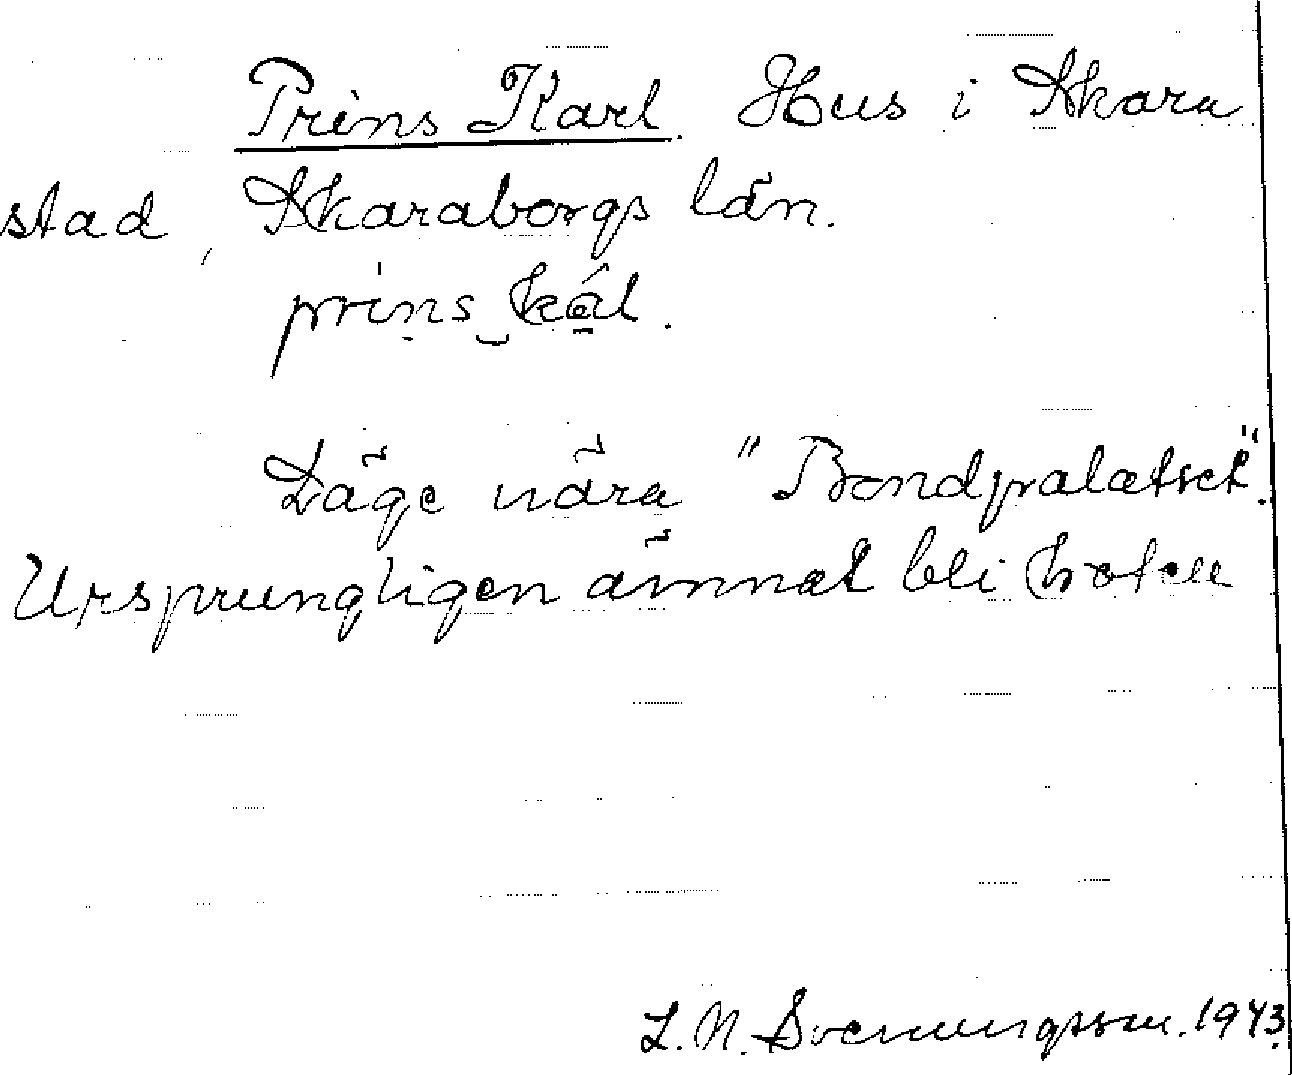 Prins Karl. Hus i Skara
stad, Skaraborgs län.
prins
Läge nära "Bondpalatset".
Ursprungligen ämnat bli hotell
L. N. Svenungsson. 1943.